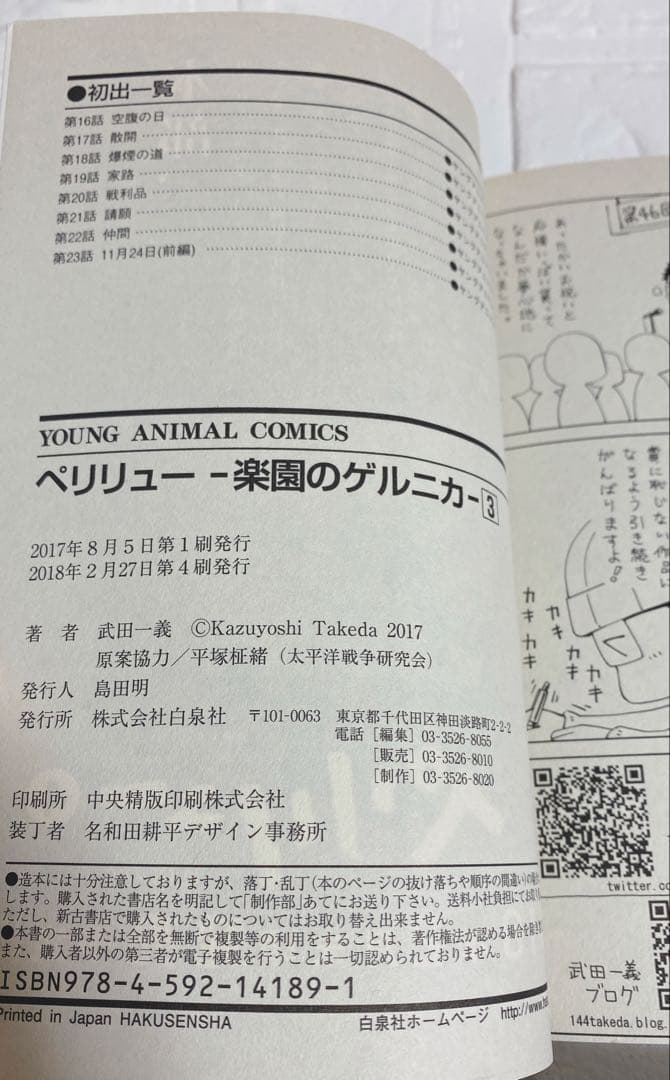 ●初出一覧
第16話 空腹の日
第17話 散開
第18話 爆煙の道
第19話 家路
第20話 戦利品
第21話 請願
第22話 仲間
第23話 11月24日(前編)
YOUNG ANIMAL COMICS
ペリリュー －楽園のゲルニカ－3
2017年8月5日第1刷発行
2018年2月27日第4刷発行
著 者 武田一義 ©Kazuyoshi Takeda 2017
原案協力／平塚柾緒（太平洋戦争研究会）
発行人 島田明
発行所 株式会社白泉社 〒101-0063 東京都千代田区神田淡路町2-2-2
電話［編集］03-3526-8055
［販売］03-3526-8010
［制作］03-3526-8020
印刷所 中央精版印刷株式会社
装丁者 名和田耕平デザイン事務所
●造本には十分注意しておりますが、落丁・乱丁（本のページの抜け落ちや順序の間違い）の
します。購入された書店名を明記して「制作部」あてにお送り下さい。送料小社負担にて
ただし、新古書店で購入されたものについてはお取り替え出来ません。
●本書の一部または全部を無断で複製等の利用をすることは、著作権法が認める場合を除き
また、購入者以外の第三者が電子複製を行うことは一切認められておりません。
ISBN978-4-592-14189-1
Printed in Japan HAKUSENSHA 白泉社ホームページ http://www.
第46回
あったかいお祝いと
応援いっぱい貰って
なんだか夢心地に
なっちゃいました。
賞に恥じない作品に
なるよう引き続き
がんばりますよ!
カキカキ
カキカキ
カキ
twitter.co
武田一義
ブログ
144takeda.blog.